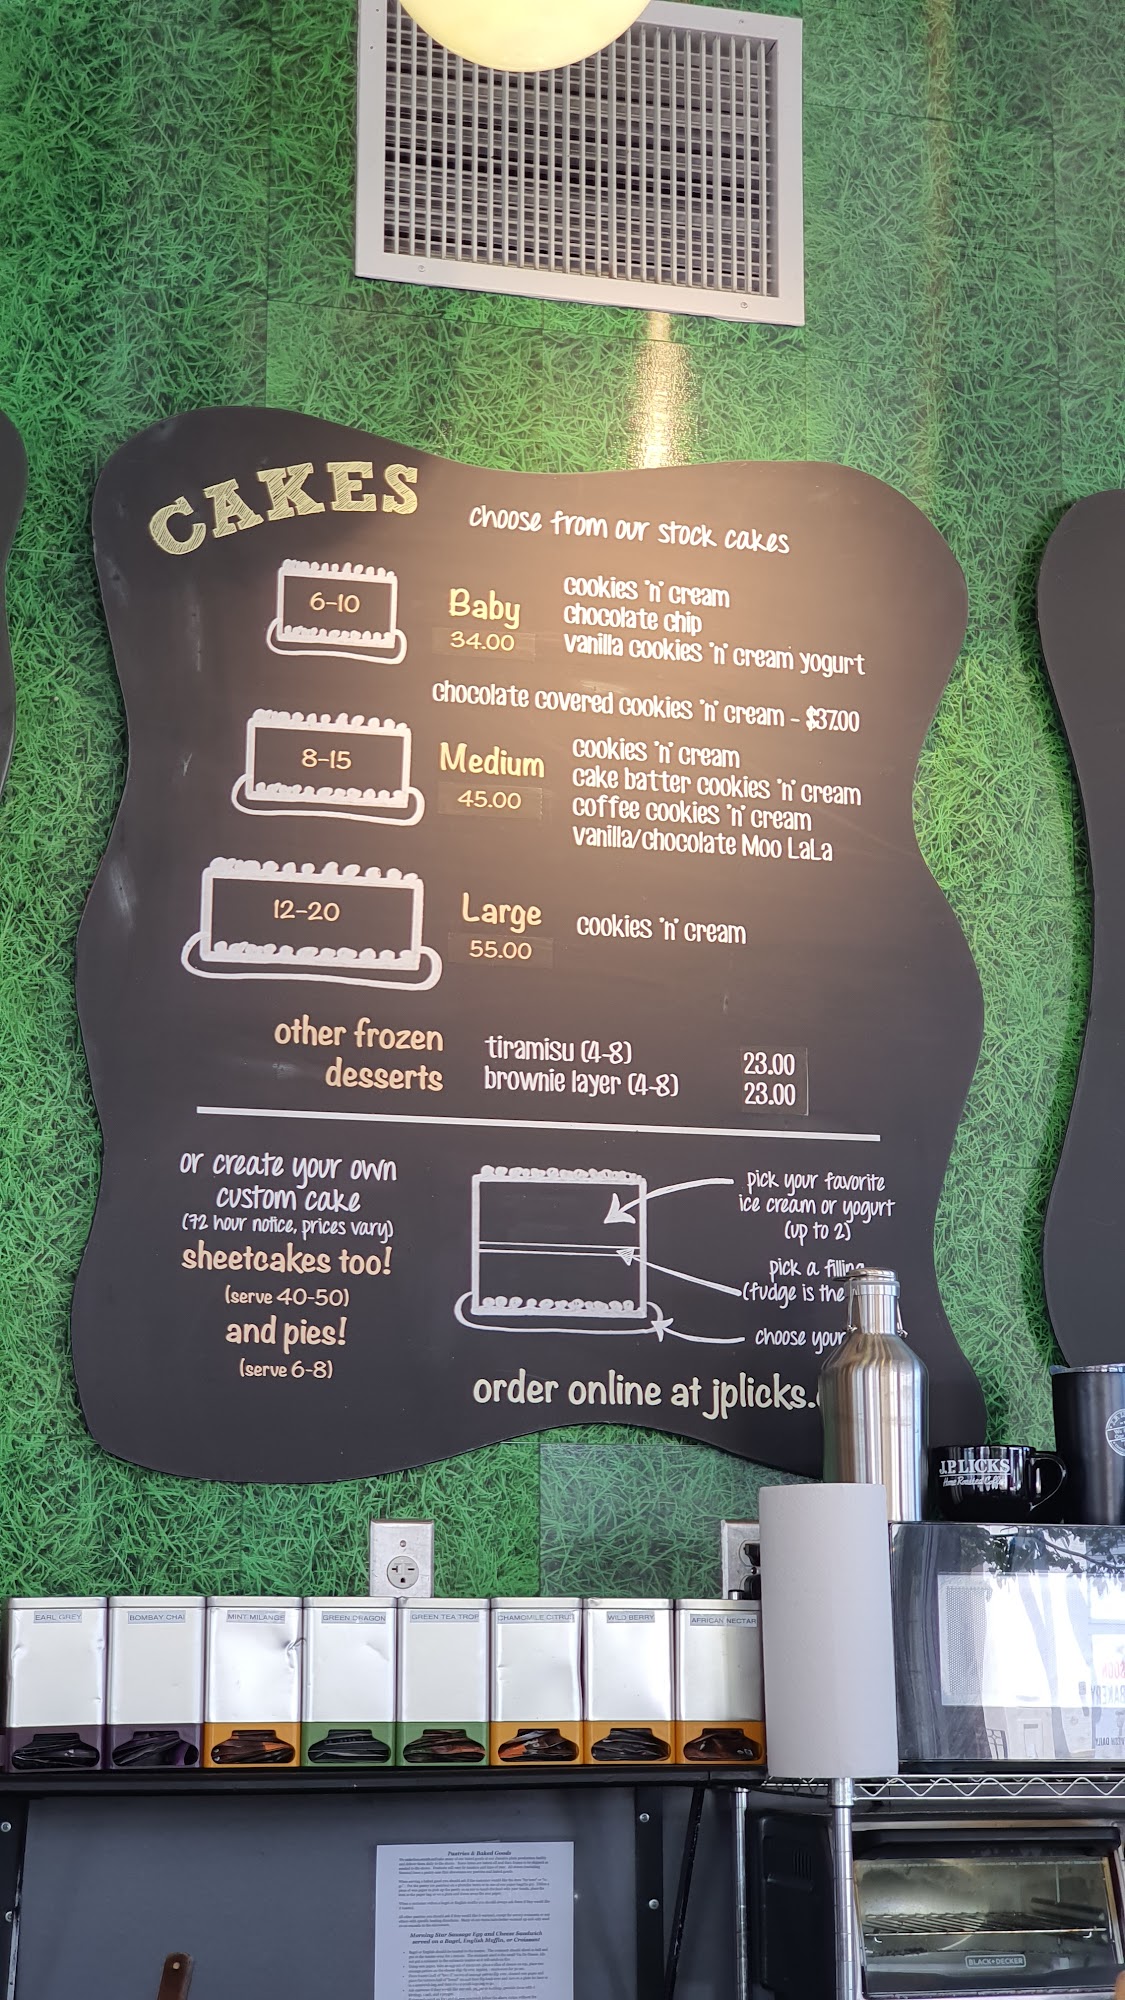 CAKES
choose from our stock cakes
6-10
Baby
34.00
cookies 'n' cream
chocolate chip
vanilla cookies 'n' cream yogurt
chocolate covered cookies 'n' cream - $37.00
8-15
Medium
45.00
cookies 'n' cream
cake batter cookies 'n' cream
coffee cookies 'n' cream
vanilla/chocolate Moo LaLa
12-20
Large
55.00
cookies 'n' cream
other frozen
desserts
tiramisu (4-8) 23.00
brownie layer (4-8) 23.00
or create your own
custom cake
(72 hour notice, prices vary)
sheetcakes too!
(serve 40-50)
and pies!
(serve 6-8)
pick your favorite
ice cream or yogurt
(up to 2)
pick a filling
(fudge is the
choose your
order online at jplicks.
J.P. LICKS
EARL GREY
BOMBAY CHAI
MINT MILANGE
GREEN DRAGON
GREEN TEA TROP
CHAMOMILE CITRUS
WILD BERRY
AFRICAN NECTAR
Pastries & Baked Goods
Morning Star Sausage Egg and Cheese Sandwich
served on a Bagel, English Muffin, or Croissant
BLACK+DECKER